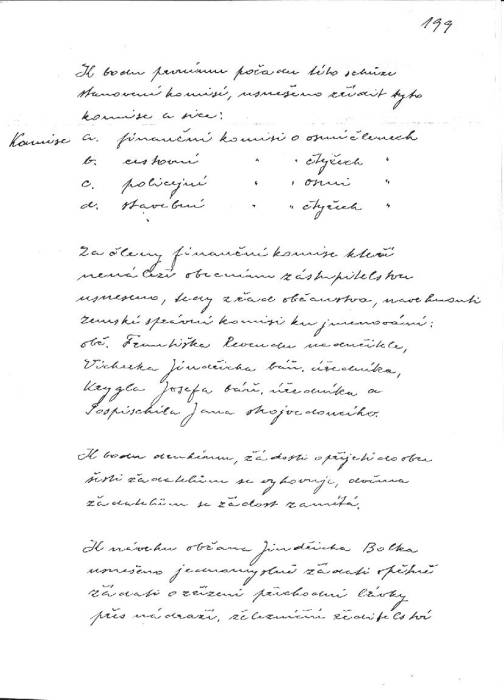 199
K bodu prvnímu počadu této schůze
stanovení komisí, usnešeno zřídit tyto
komise a sice:
Komise a. finanční komisi o osmi členech
b. cestovní " " čtyřech "
c. policejní " " osmi "
d. stavební " " čtyřech "
Za členy finanční komise kteří
nenáleží obecnímu zástupitelstvu
usneseno, tedy z řad občanstva, navrhnouti
zemské správní komisi ku jmenování:
obč. Františka Revendu nadučitele,
Jindřicha báň. úředníka,
Krygla Josefa báň. úředníka a
Pospischila Jana strojvedoucího.
K bodu druhému, žádosti o přijetí do obce
šesti žadatelům se vyhovuje, dvěma
žadatelům se žádost zamítá.
K návrhu občana Jindřicha Bolka
usnešeno jednomyslně žádati opětně
žádati o zřízení příchodní lávky
přes nádraží, železniční ředitelství